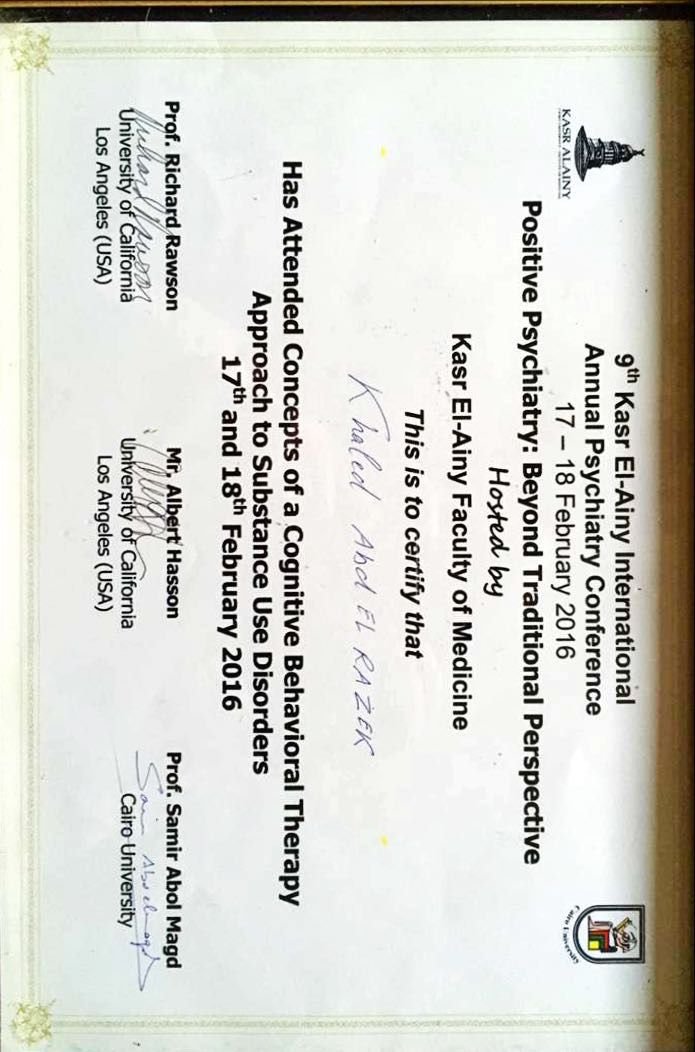 KASR ALAINY
Cairo University
9th Kasr El-Ainy International
Annual Psychiatry Conference
17 – 18 February 2016
Positive Psychiatry: Beyond Traditional Perspective
Hosted by
Kasr El-Ainy Faculty of Medicine
This is to certify that
Khaled Abd EL RAZEK
Has Attended Concepts of a Cognitive Behavioral Therapy
Approach to Substance Use Disorders
17th and 18th February 2016
Prof. Richard Rawson
University of California
Los Angeles (USA)
Mr. Albert Hasson
University of California
Los Angeles (USA)
Prof. Samir Abol Magd
Cairo University